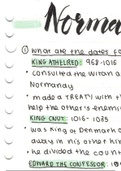 Norma
① What are the dates f
KING AETHELRED: 968-1016
• consulted the witan a
Normandy
• made a TREATY with t
help the other's enemi
KING CNUT: 1016-1035
• was King of Denmark a
away in his other kin
he divided the count
EDWARD THE CONFESSOR: 10